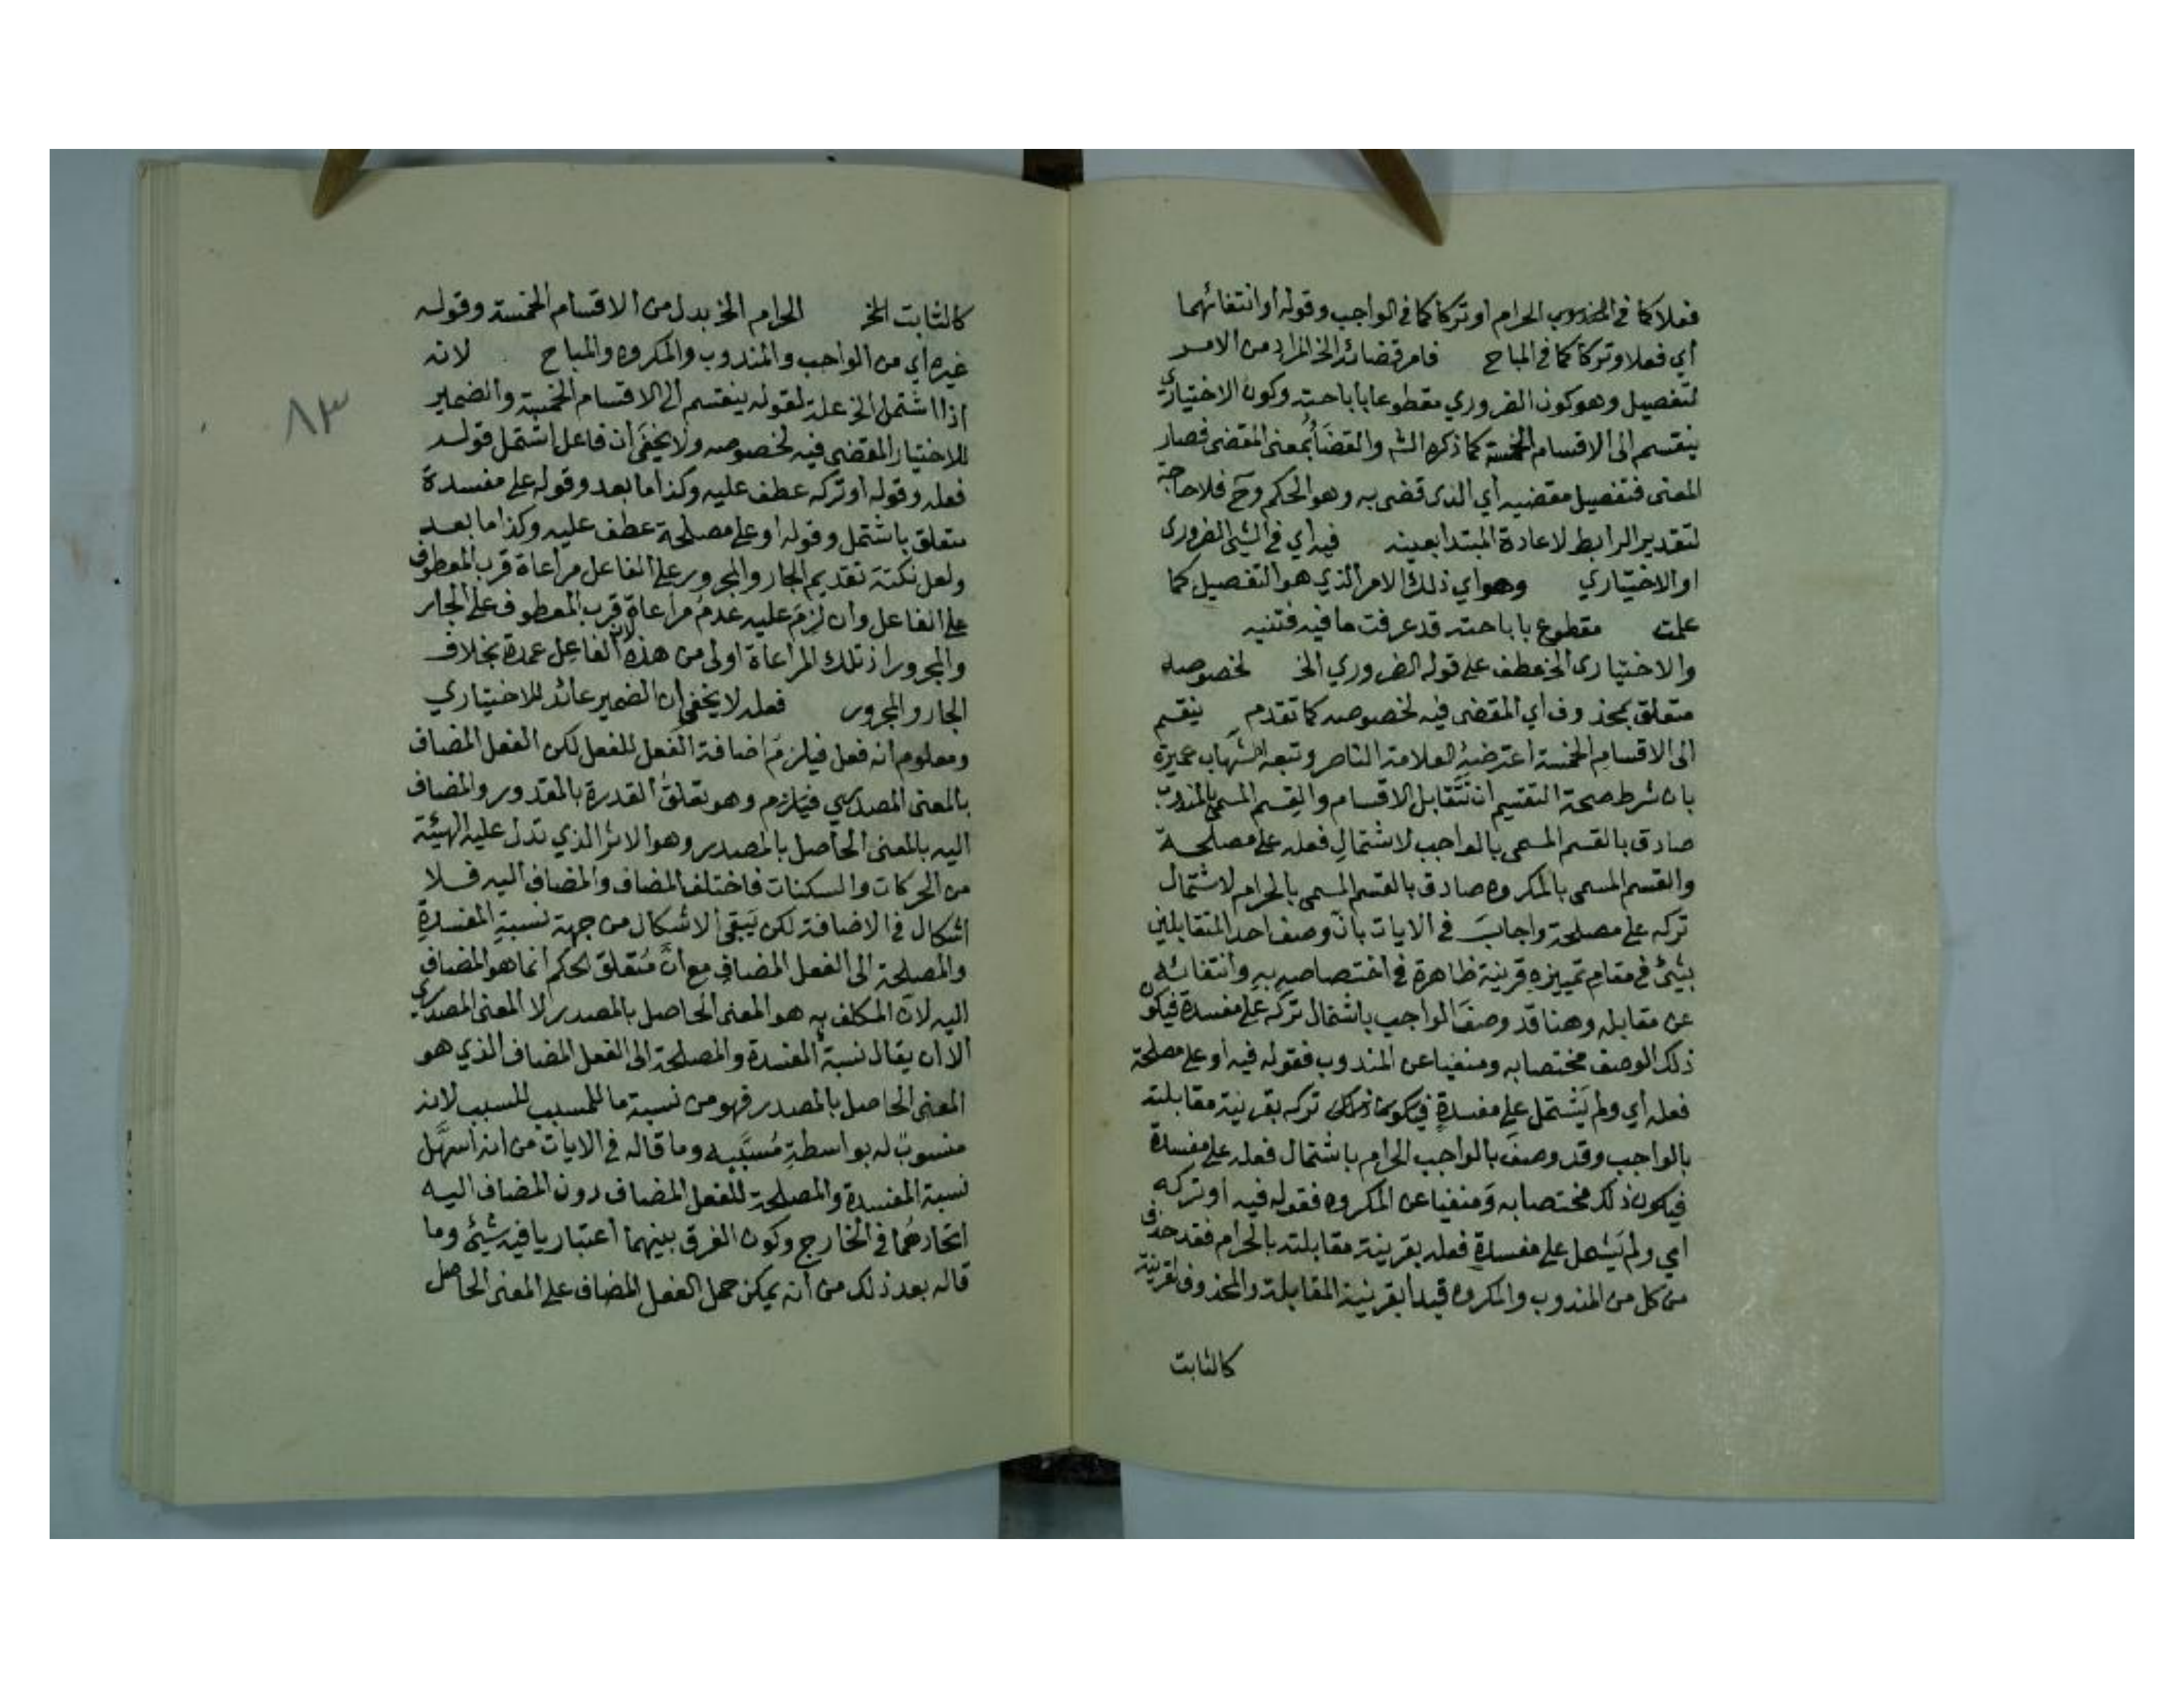 فعلا كما في الحرام او تركا كما في الواجب وقوله او انتفائهما
أي فعلا وتركا كما في المباح فامر قضائه الخ المراد من الامر
لتفصيل وهو كون الضروري مقطوعا باباحته وكون الاختياري
ينقسم الى الاقسام الخمسة كما ذكره الشم والقضاءُ بمعنى المقضى فصار
المعنى فتفصيل مقضيه أي الذى قضى به وهو الحكم وح فلا حاجة
لتقدير الرابط لاعادة المبتدا بعينه فيه أي في الشئ الضرورى
او الاختياري وهو اي ذلك الامر الذي هو التفصيل كما
علمت مقطوع باباحته قد عرفت ما فيه فتنبه
والاختيارى الخ عطف على قوله الضروري الخ لخصوصه
متعلق بمحذوف اي المقضى فيه لخصوصه كما تقدم ينقسم
الى الاقسام الخمسة اعترضه العلامة الناصر وتبعه الشهاب عميرة
بان شرط صحة التقسيم ان تتقابل الاقسام والقسم المسمى بالمندوب
صادق بالقسم المسمى بالواجب لاشتمال فعله على مصلحة
والقسم المسمى بالمكروه صادق بالقسم المسمى بالحرام لاشتمال
تركه على مصلحة واجابَ في الايات بانّ وصف احد المتقابلين
بشئ في مقام تمييزه قرينة ظاهرة في اختصاصه به وانتفائه
عن مقابله وهنا قد وصفَ الواجب باشتمال تركه على مفسدة فيكون
ذلك الوصف مختصا به ومنفيا عن المندوب فقوله فيه او على مصلحة
فعله أي ولم يَشتمل على مفسدةٍ تركه بقرينة مقابلته
بالواجب وقد وصفَ بالواجب الحرام باشتمال فعله على مفسدة
فيكون ذلك مختصا به وَمنفيا عن المكروه فقوله فيه او تركه
اي ولم يَشتمل على مفسدةٍ فعله بقرينة مقابلته بالحرام فقد حذف
من كل من المندوب والمكروه قيدا بقرينة المقابلة والمحذوف لقرينة
كالثابت
كالثابت الخ الحرام الخ بدل من الاقسام الخمسة وقوله
غيره أي من الواجب والمندوب والمكروه والمباح لانه
اذا اشتمل الخ علة لقوله ينقسم الى الاقسام الخمسة والضمير
للاختيار المقضى فيه لخصوصه ولا يخفى ان فاعل اشتمل قوله
فعله وقوله او تركه عطف عليه وكذا ما بعد وقوله على مفسدة
متعلق باشتمل وقوله او على مصلحة عطف عليه وكذا ما بعد
ولعل نكتة تقديم الجار والمجرور على الفاعل مراعاة قرب المعطوف
على الفاعل وان لزمَ عليه عدمُ مراعاة قرب المعطوف على الجار
والمجرور اذ تلك المراعاة اولى من هذه لان الفاعل عمدة بخلاف
الجار والمجرور فعله لا يخفى ان الضمير عائد للاختياري
ومعلوم انه فعل فيلزمَ اضافة الفعل للفعل لكن الفعل المضاف
بالمعنى المصدري فيلزم وهو تعلق القدرة بالمقدور والمضاف
اليه بالمعنى الحاصل بالمصدر وهو الاثر الذي تدل عليه الهيئة
من الحركات والسكنات فاختلف المضاف والمضاف اليه فلا
اشكال في الاضافة لكن يَبقى الاشكال من جهة نسبةِ المفسدةِ
والمصلحة الى الفعل المضافِ مع انَّ مُتعلق الحكم انما هو المضاف
اليه لان المكلف به هو المعنى الحاصل بالمصدر لا المعنى المصدري
الا ان يقال نسبةُ المفسدة والمصلحة الى الفعل المضاف الذي هو
المعنى الحاصل بالمصدر فهو من نسبة ما للمسبب للسبب لانه
منسوبٌ له بواسطةِ مُسبَّبه وما قاله في الايات من انه اسهَل
نسبة المفسدة والمصلحة للفعل المضاف دون المضاف اليه
اتحادهُما في الخارج وكون الفرق بينهما اعتباريا فيه شيئ وما
قاله بعد ذلك من انه يمكن حمل الفعل المضاف على المعنى الحاصل
٨٣